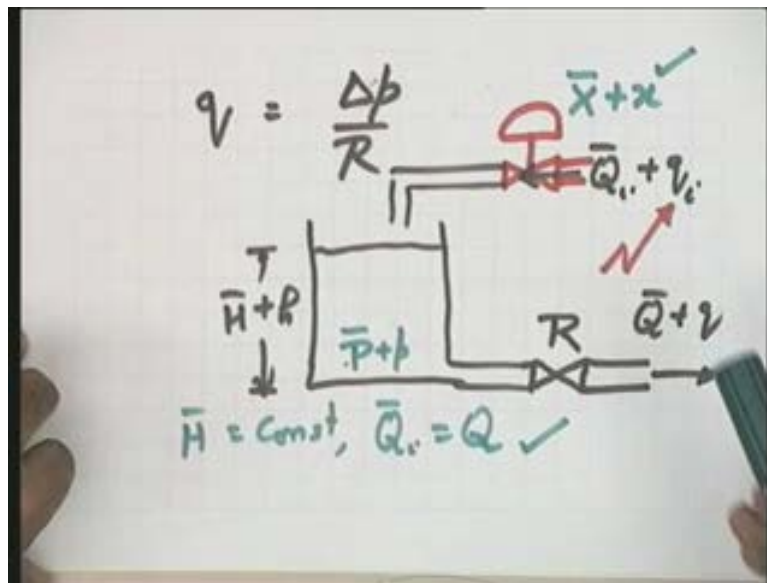 q = Δp / R
X̄ + x ✓
Q̄ᵢ + qᵢ
H̄ + h
P̄ + p
R
Q̄ + q
H̄ = Const, Q̄ᵢ = Q ✓